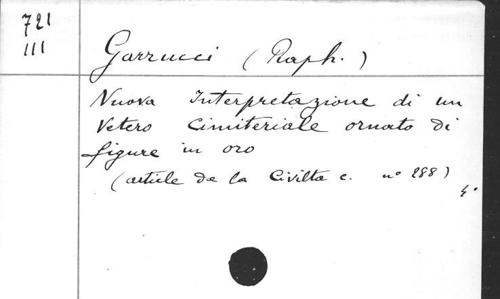 721
III
Garrucci (Raph.)
Nuova Interpretazione di un
Vetero Cimiteriale ornato di
figure in oro
(article de la Civilta c. nº 288)
4º